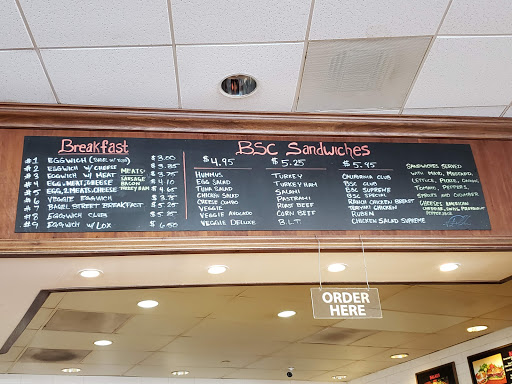 Breakfast
#1 EGGWICH (BAGEL W/ EGG) $3.00
#2 EGGWICH W/ CHEESE $3.85
#3 EGGWICH W/ MEAT $3.95
#4 EGG, MEAT, CHEESE $4.10
#5 EGG, 2 MEATS, CHEESE $4.65
#6 VEGGIE EGGWICH $3.75
#7 BAGEL STREET BREAKFAST $5.25
#8 EGGWICH CLUB $5.25
#9 EGGWICH W/ LOX $6.50
MEATS:
SAUSAGE
BACON
TURKEY HAM
BSC Sandwiches
$4.95
HUMMUS
EGG SALAD
TUNA SALAD
CHICKEN SALAD
CHEESE COMBO
VEGGIE
VEGGIE AVOCADO
VEGGIE DELUXE
$5.25
TURKEY
TURKEY HAM
SALAMI
PASTRAMI
ROAST BEEF
CORN BEEF
B.L.T.
$5.95
CALIFORNIA CLUB
BSC CLUB
BSC SUPREME
BSC SPECIAL
RANCH CHICKEN BREAST
TERIYAKI CHICKEN
RUBEN
CHICKEN SALAD SUPREME
SANDWICHES SERVED
WITH MAYO, MUSTARD,
LETTUCE, PICKLE, ONION,
TOMATO, PEPPERS,
SPROUTS AND CUCUMBER
CHEESES: AMERICAN
CHEDDAR, SWISS, PROVOLONE
PEPPERJACK
ORDER
HERE